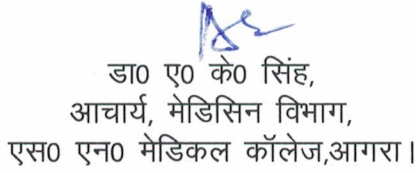 डा0 ए0 के0 सिंह,
आचार्य, मेडिसिन विभाग,
एस0 एन0 मेडिकल कॉलेज,आगरा।